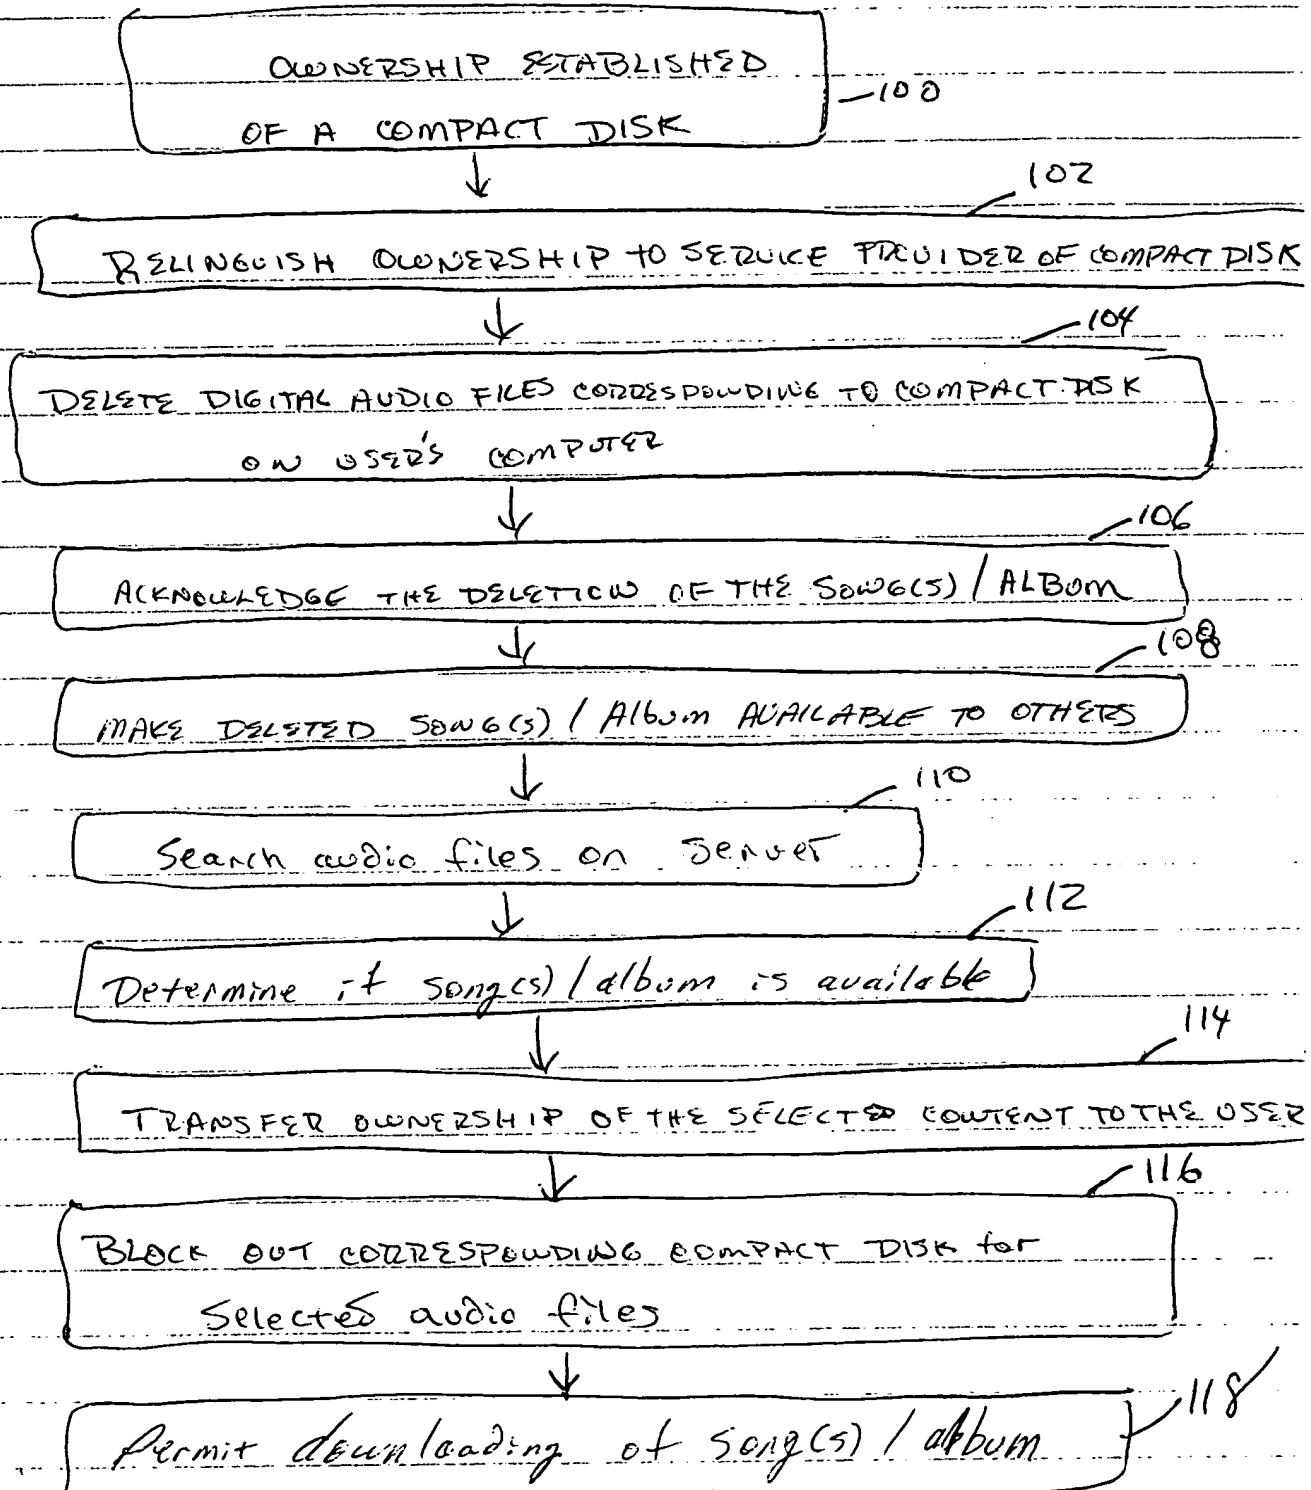 OWNERSHIP ESTABLISHED
100
OF A COMPACT DISK
102
RELINGUISH OWNERSHIP TO SERVICE PROVIDER OF COMPACT DISK
104
DELETE DIGITAL AUDIO FILES CORRESPONDING TO COMPACT DISK
ON USER'S COMPUTER
106
ACKNOWLEDGE THE DELETION OF THE SONG(S) / ALBUM
108
MAKE DELETED SONG(S) / Album AVAILABLE TO OTHERS
110
Search audio files on server
112
Determine if song(s) / album is available
114
TRANSFER OWNERSHIP OF THE SELECTED CONTENT TO THE USER
116
BLOCK OUT CORRESPONDING COMPACT DISK for
Selected audio files
118
Permit downloading of song(s) / album